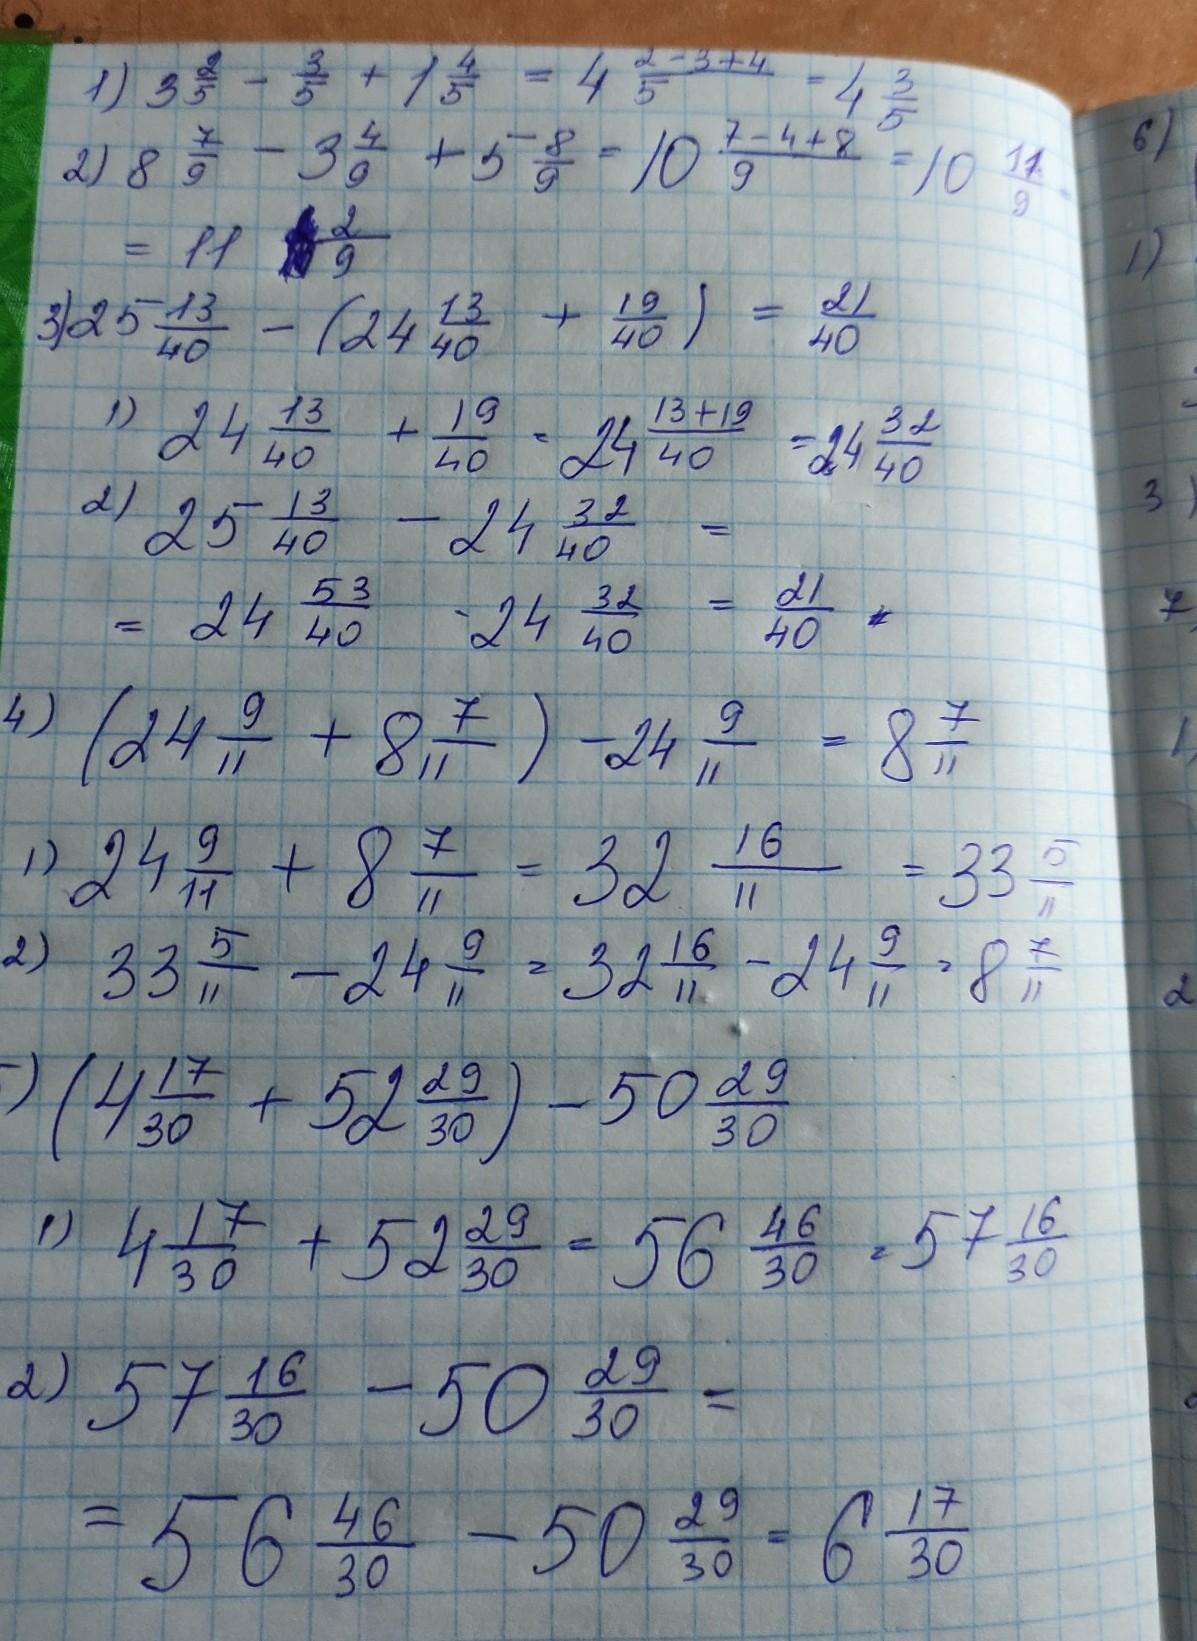 1) 3 2/5 - 3/5 + 1 4/5 = 4 (2-3+4)/5 = 4 3/5
2) 8 7/9 - 3 4/9 + 5 8/9 = 10 (7-4+8)/9 = 10 11/9 =
= 11 2/9
3) 25 13/40 - (24 13/40 + 19/40) = 21/40
1) 24 13/40 + 19/40 = 24 (13+19)/40 = 24 32/40
2) 25 13/40 - 24 32/40 =
= 24 53/40 - 24 32/40 = 21/40
4) (24 9/11 + 8 7/11) - 24 9/11 = 8 7/11
1) 24 9/11 + 8 7/11 = 32 16/11 = 33 5/11
2) 33 5/11 - 24 9/11 = 32 16/11 - 24 9/11 = 8 7/11
) (4 17/30 + 52 29/30) - 50 29/30
1) 4 17/30 + 52 29/30 = 56 46/30 = 57 16/30
2) 57 16/30 - 50 29/30 =
= 56 46/30 - 50 29/30 = 6 17/30
6)
1)
3)
7
1
2